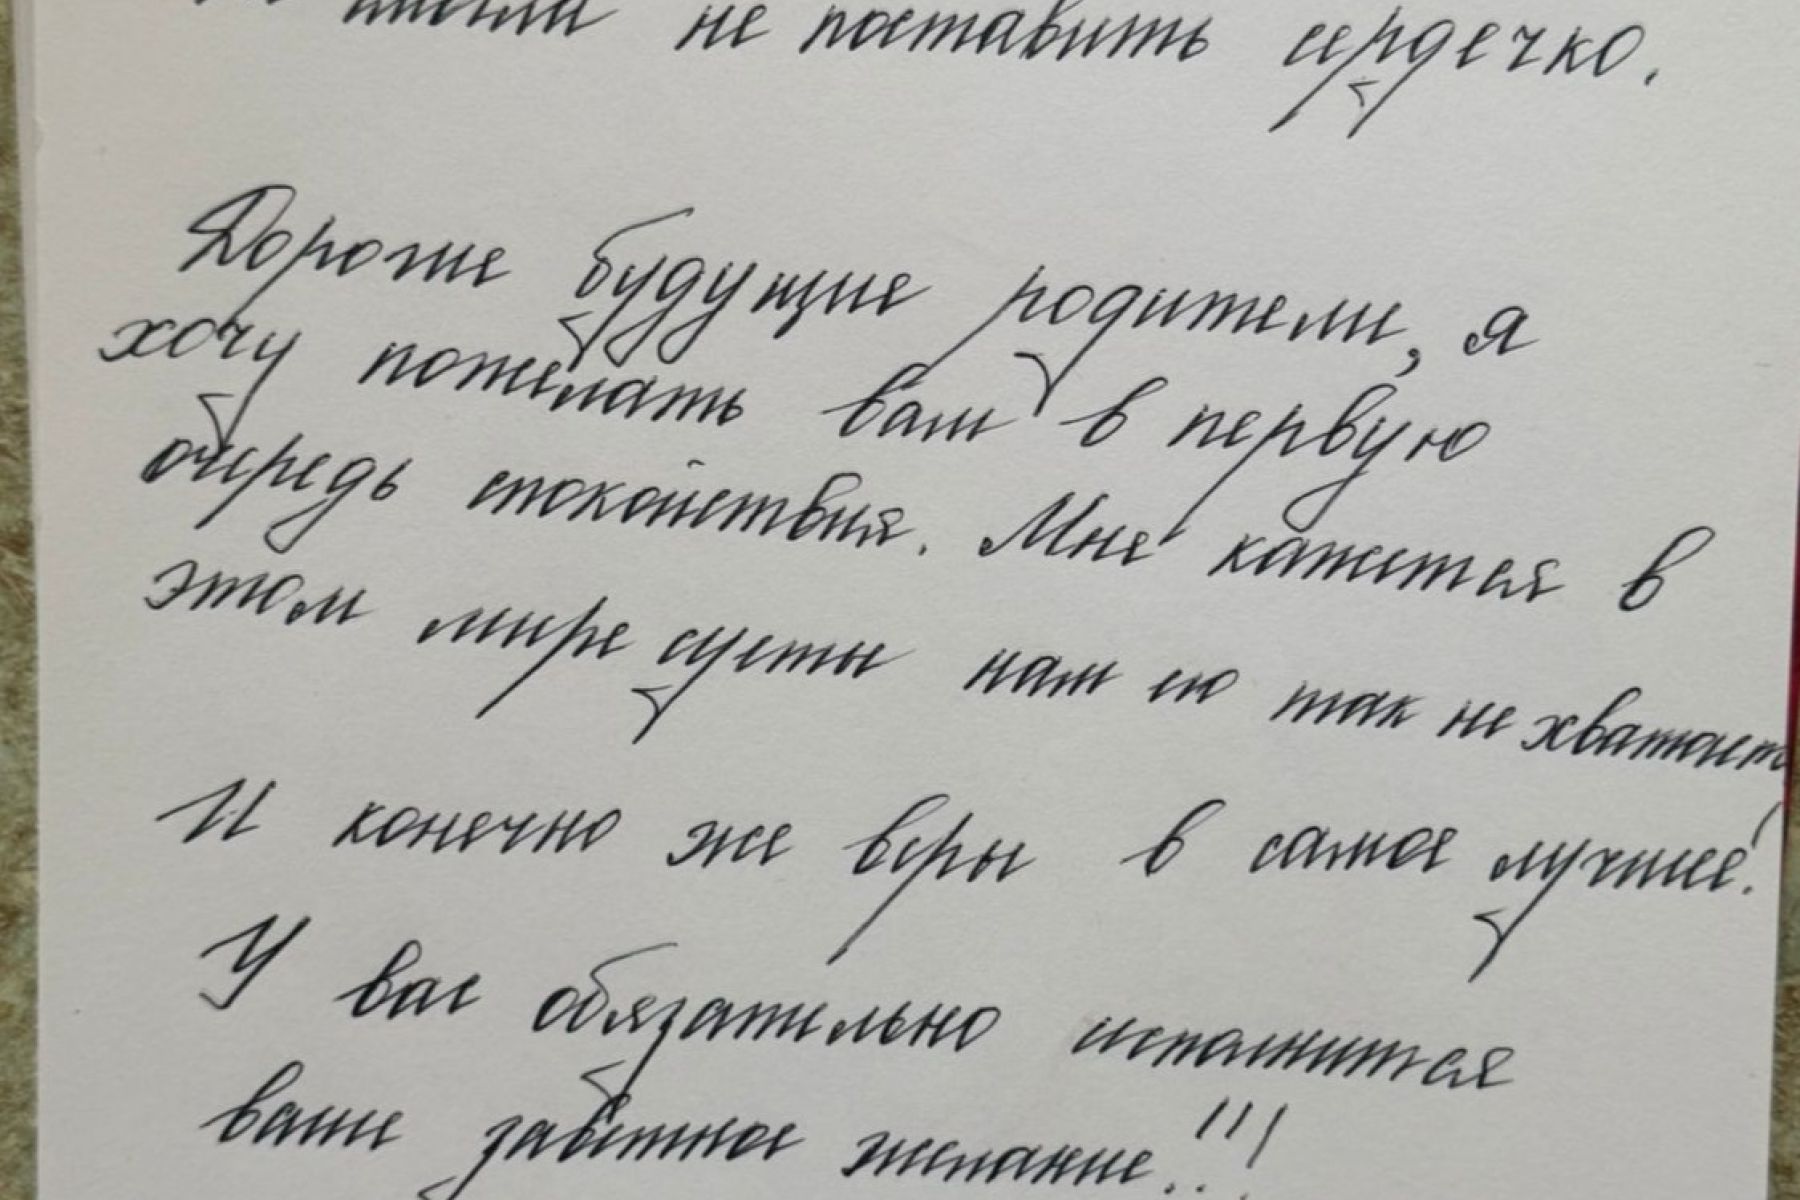 не поставить сердечко.
Дорогие будущие родители, я
хочу пожелать вам в первую
очередь спокойствия. Мне кажется в
этом мире суеты нам его так не хватает
И конечно же веры в самое лучшее!
У вас обязательно исполнится
ваше заветное желание!!!